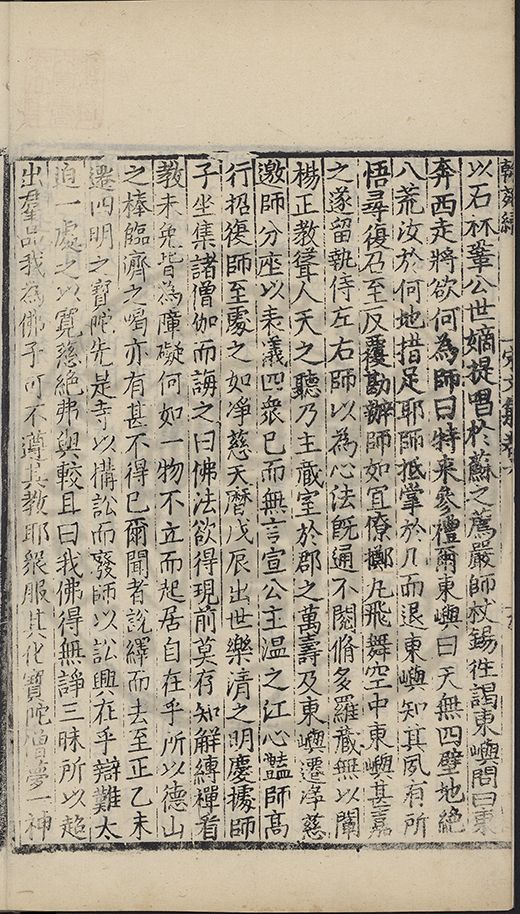 以石林鞏公世嫡提唱於蘇之薦嚴師杖錫徃謁東嶼問曰東
奔西走將欲何為師曰特來參禮爾東嶼曰天無四壁地絶
八荒汝於何地措足耶師抵掌於几而退東嶼知其夙有所
悟尋復召至反覆勘辦師如宜僚擲丸飛舞空中東嶼甚嘉
之遂留執侍左右師以為心法旣通不閱脩多羅藏無以闡
楊正教聳人天之聽乃主藏室於郡之萬壽及東嶼遷淨慈
邀師分座以表儀四衆已而無言宣公主温之江心豔師髙
行招復師至處之如淨慈天暦戊辰出世樂清之明慶據師
子坐集諸僧伽而誨之曰佛法欲得現前莫存知解縛禪看
教未免皆為障礙何如一物不立而起居自在乎所以德山
之棒臨濟之喝亦有甚不得已爾聞者說繹而去至正乙未
遷四明之寶陀先是寺以搆訟而廢師以訟興在乎辯難太
迫一處之以寛慈絶弗與較且曰我佛得無諍三昧所以超
出羣品我為佛子可不遵其教耶衆服其化寶陀僧夢一神